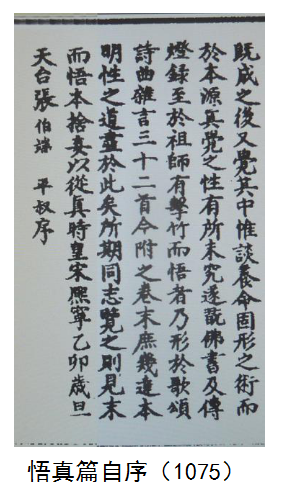 既成之後又覺其中惟談養命固形之術而
於本源真覺之性有所未究遂翫佛書及傳
燈錄至於祖師有擊竹而悟者乃形於歌頌
詩曲雜言三十二首今附之卷末庶幾達本
明性之道盡於此矣所期同志覽之則見末
而悟本捨妄以從真時皇宋熙寧乙卯歲旦
天台張伯端 平叔序
悟真篇自序（1075）